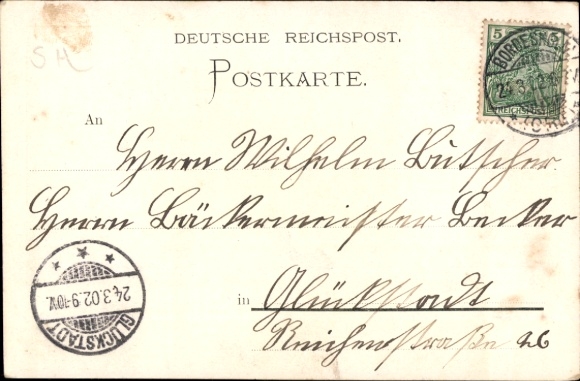 SH
DEUTSCHE REICHSPOST.
POSTKARTE.
5
BORDESHOLM
REICHSPOST
An
Herrn Wilhelm Bütscher
Herrn Bäckermeister Becker
in Glückstadt
Reichenstraße 26
24.3.02.9-10V.
GLÜCKSTADT